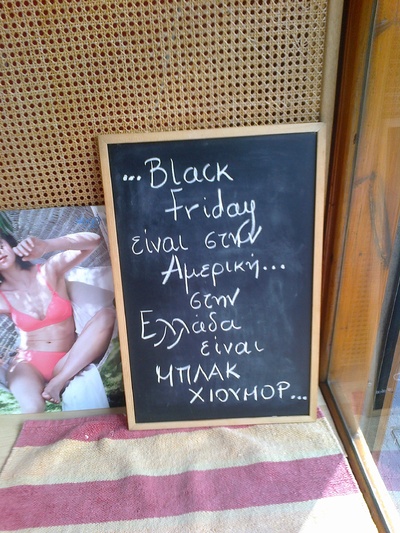 ...Black
Friday
είναι στην
Αμερική...
στην
Ελλάδα
είναι
ΜΠΛΑΚ
ΧΙΟΥΜΟΡ...